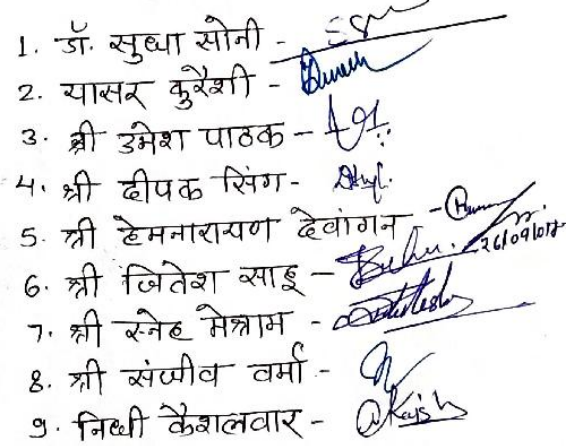 1. डॉ. सुधा सोनी -
2. यासर कुरैशी -
3. श्री उमेश पाठक -
4. श्री दीपक सिंग -
5. श्री हेमनारायण देवांगन -
6. श्री जितेश साहू - 26/09/017
7. श्री स्नेह मेश्राम -
8. श्री संजीव वर्मा -
9. निधी कैशलवार -